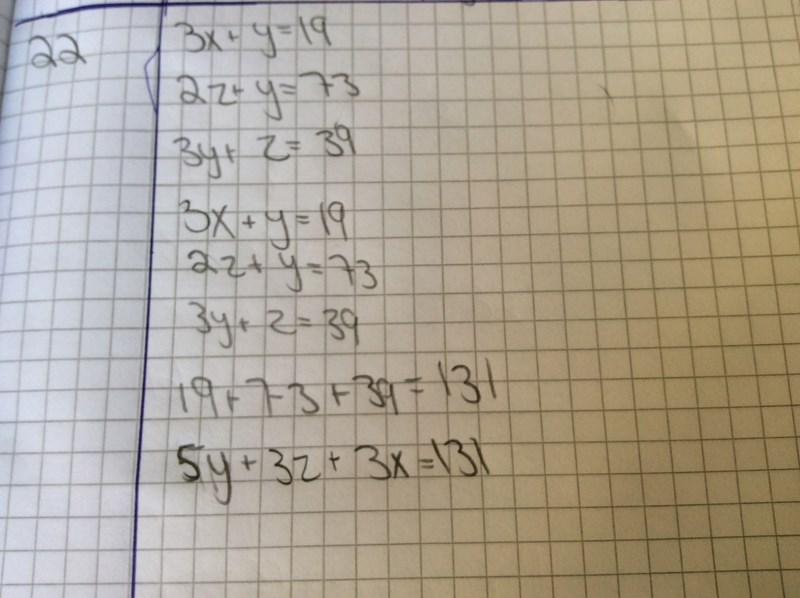 22
3x+y=19
2z+y=73
3y+z=39
3x+y=19
2z+y=73
3y+z=39
19+73+39=131
5y+3z+3x=131